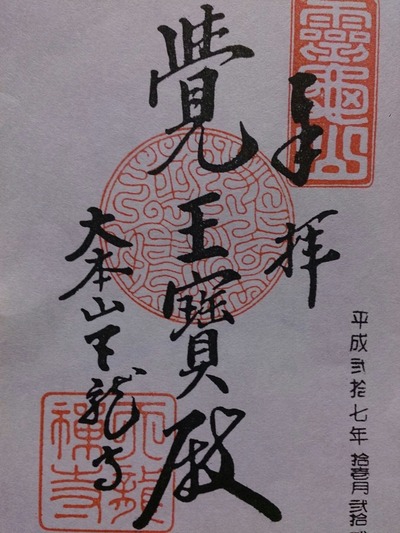 靈龜山
奉拝
平成弐拾七年 拾壱月 弐拾
覺王寶殿
大本山天龍寺
天龍禅寺